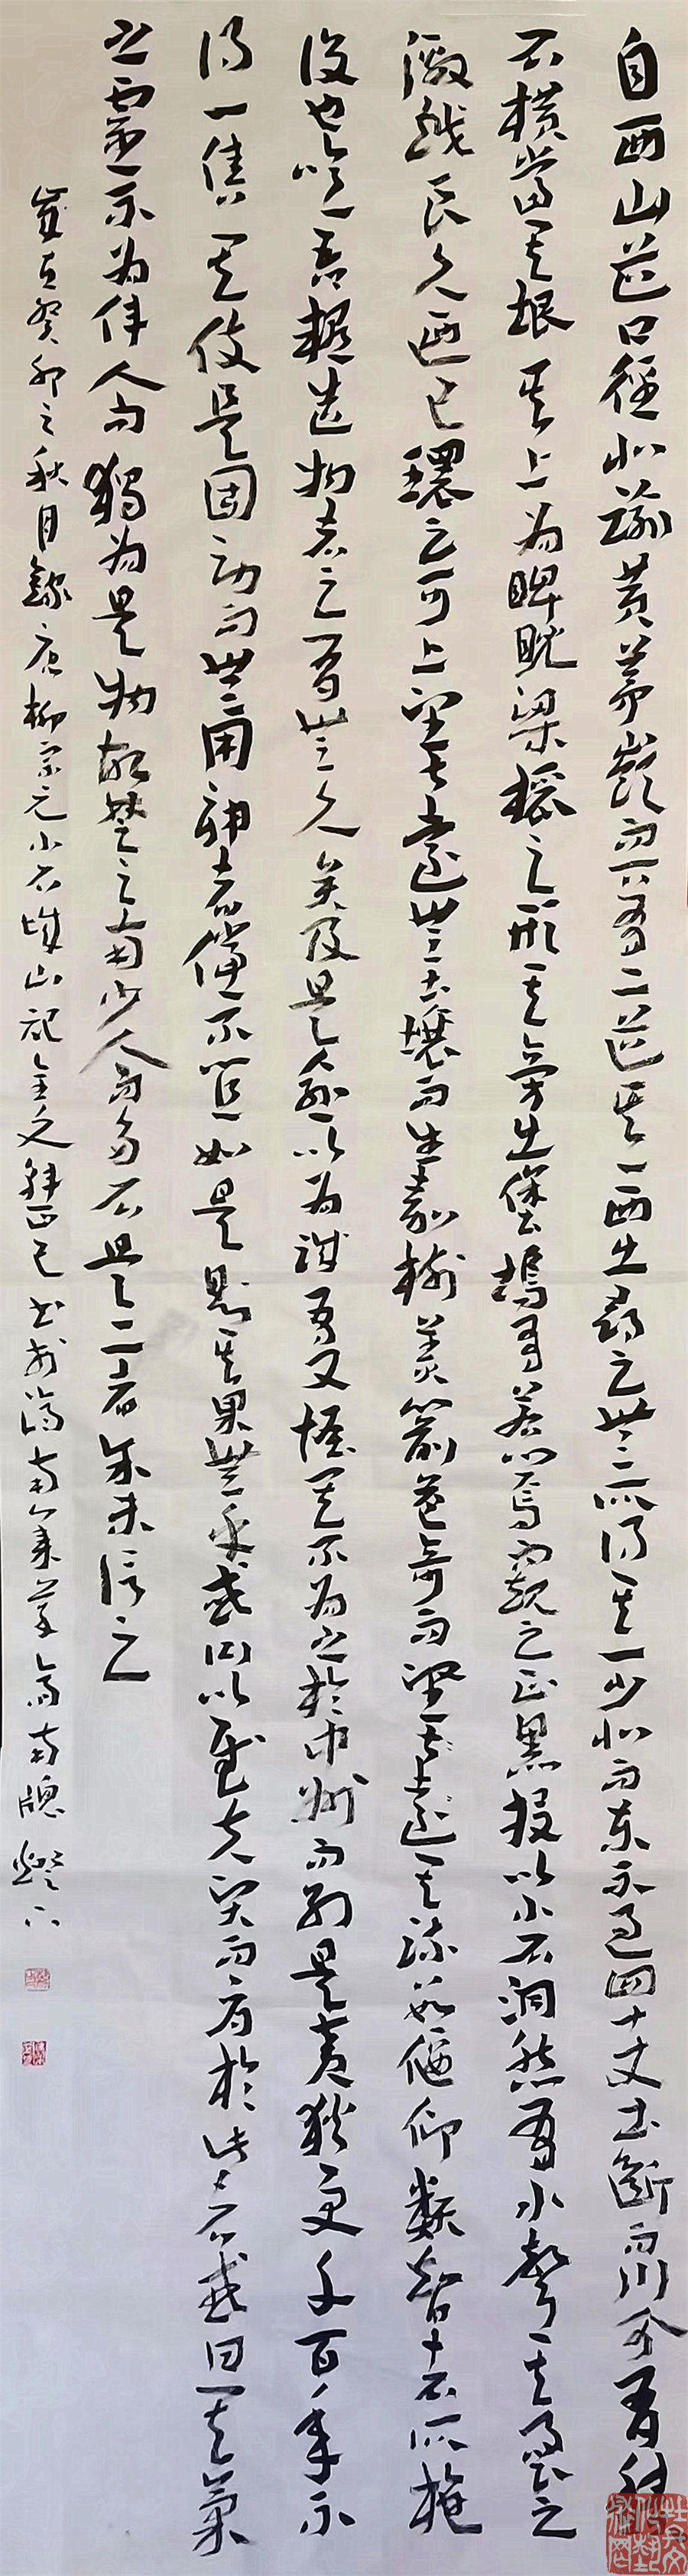 自西山道口徑北踰黃茅嶺而下有二道其一西出尋之無所得其一少北而東不過四十丈土斷而川分有積
石橫當其垠其上為睥睨梁欐之形其旁出堡塢有若門焉窺之正黑投以小石洞然有水聲其響之
激越良久乃已環之可上望甚遠無土壤而生嘉樹美箭益奇而堅其疏數偃仰類智者所施
設也噫吾疑造物者之有無久矣及是愈以為誠有又怪其不為之於中州而列是夷狄更千百年不
得一售其伎是固勞而無用神者儻不宜如是則其果無乎或曰以慰夫賢而辱於此者或曰其氣
之靈不為偉人而獨為是物故楚之南少人而多石是二者余未信之
歲在癸卯之秋月錄唐柳宗元小石城山記全文